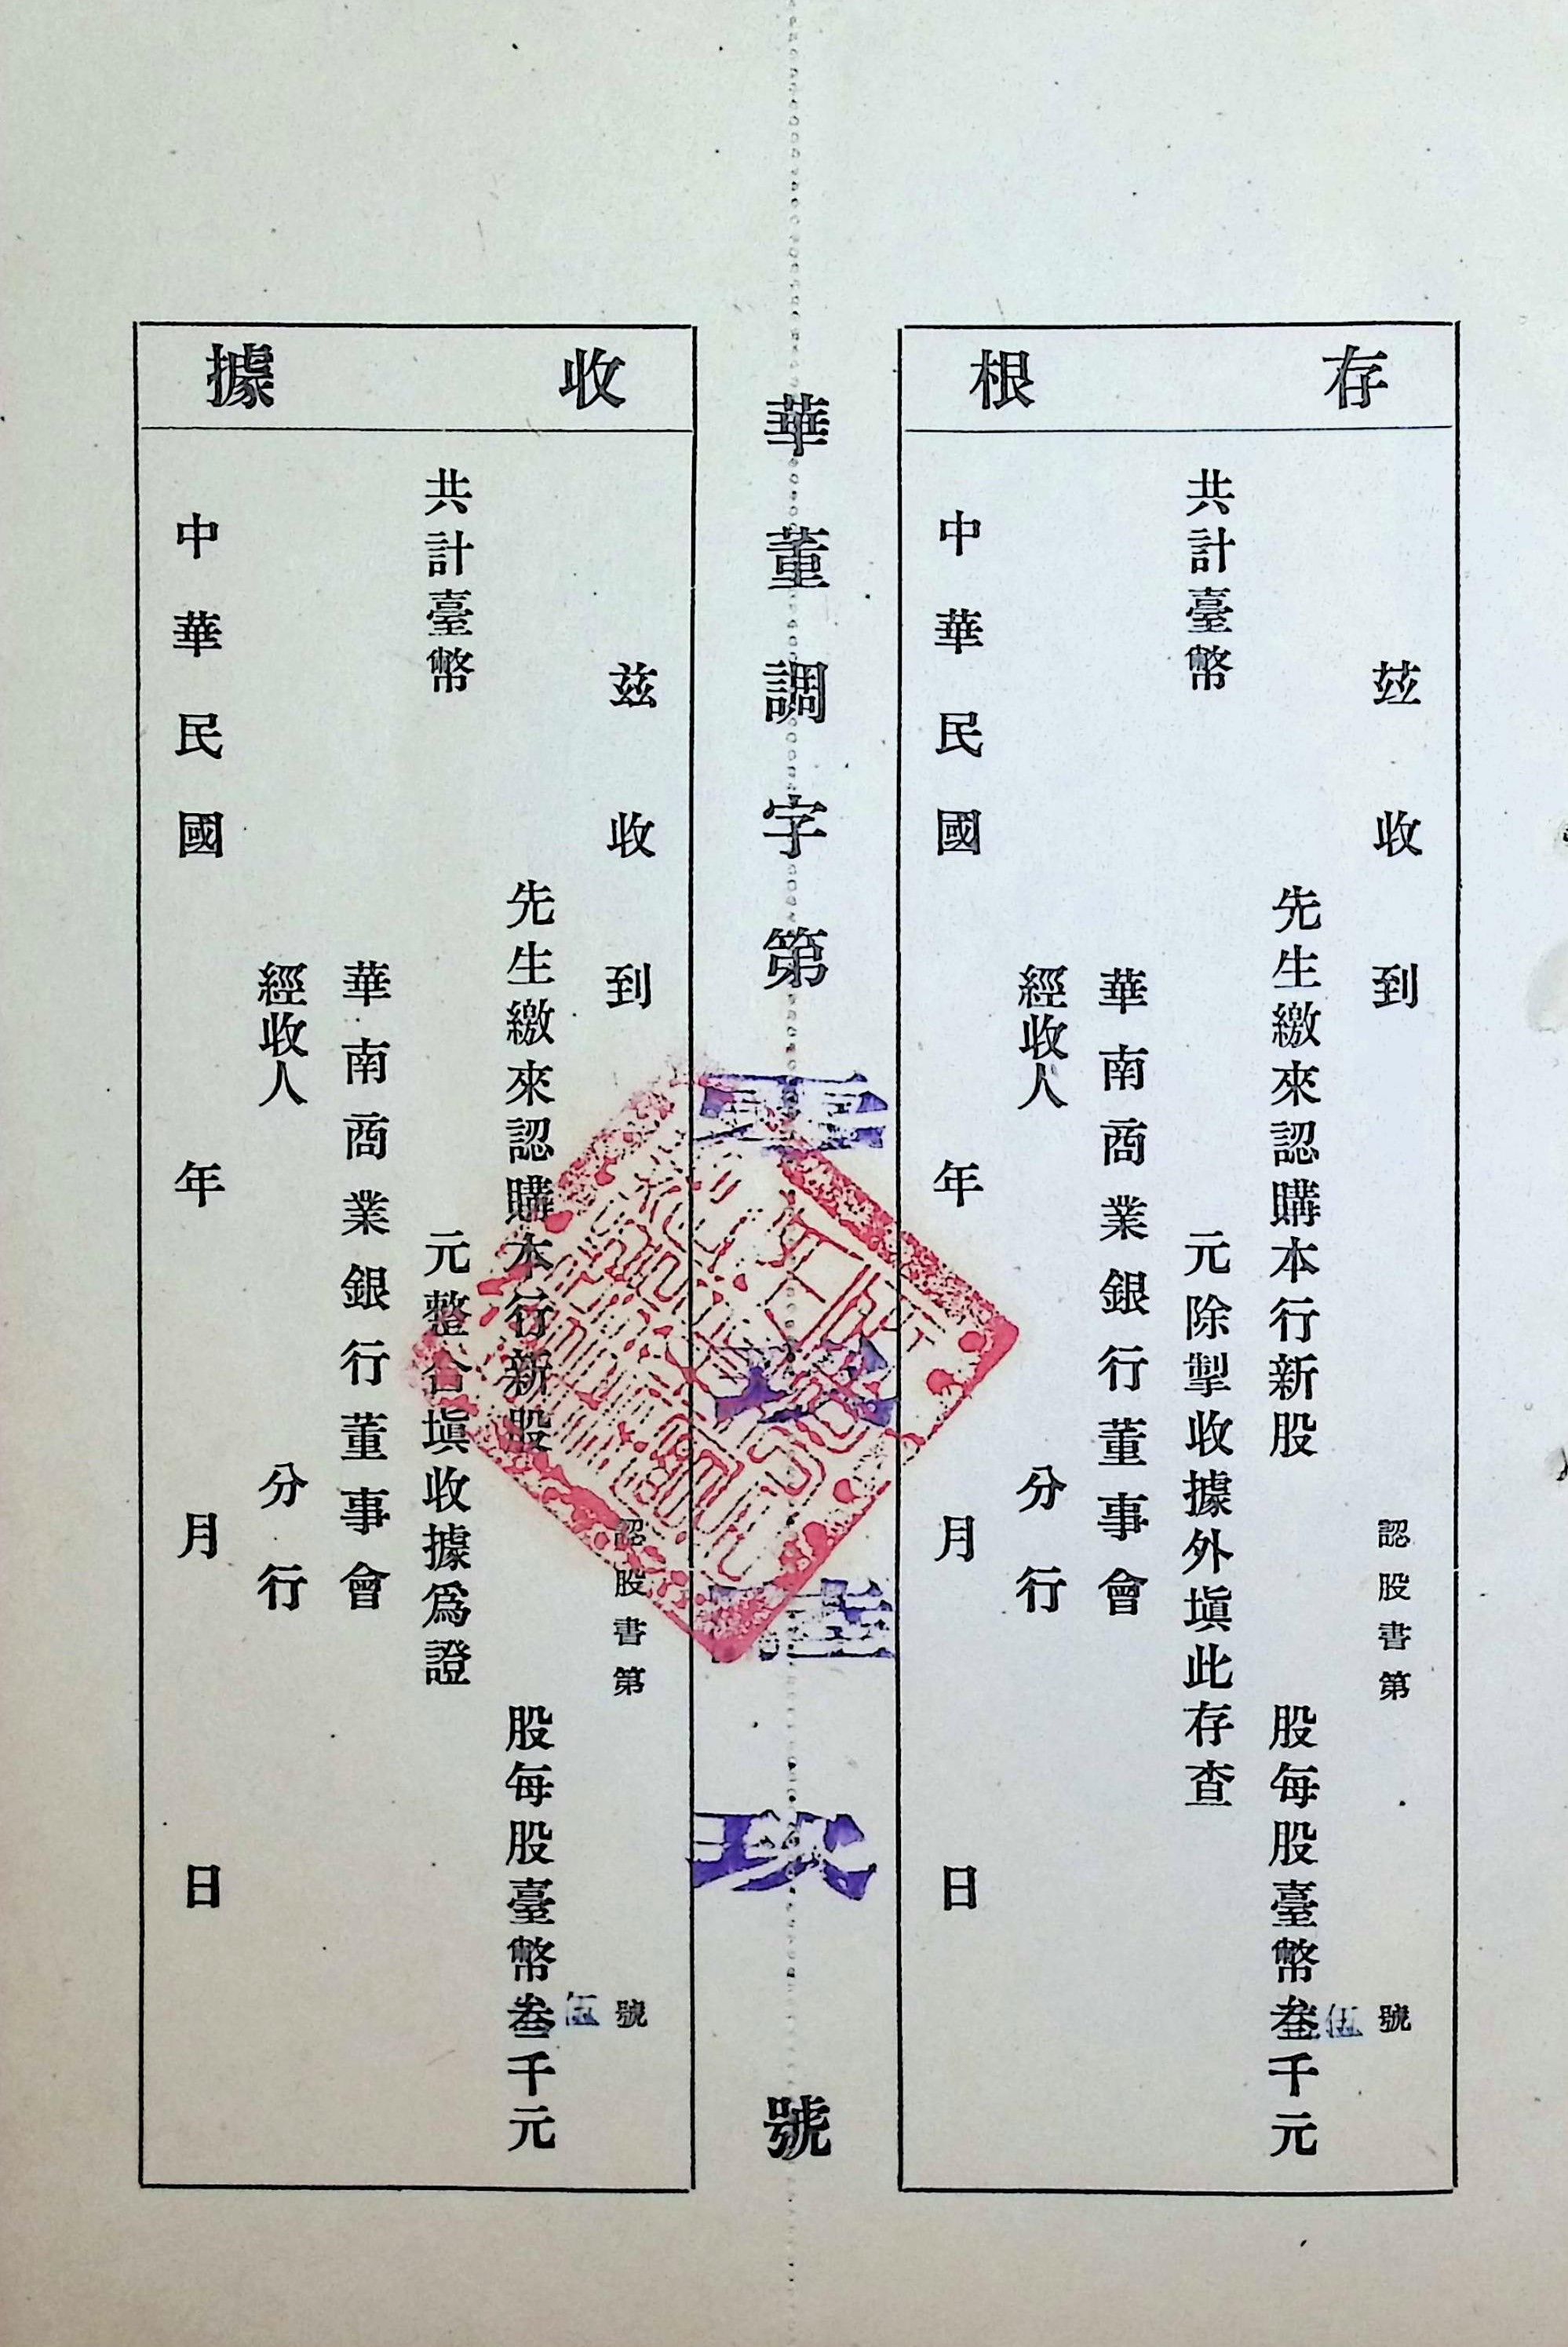 存根
茲收到
認股書第　號
先生繳來認購本行新股　股每股臺幣叁千元
伍
共計臺幣　元除掣收據外塡此存查
華南商業銀行董事會
經收人　分行
中華民國　年　月　日
華董調字第　玖　號
收據
茲收到
認股書第　號
先生繳來認購本行新股　股每股臺幣叁千元
伍
共計臺幣　元整合塡收據爲證
華南商業銀行董事會
經收人　分行
中華民國　年　月　日